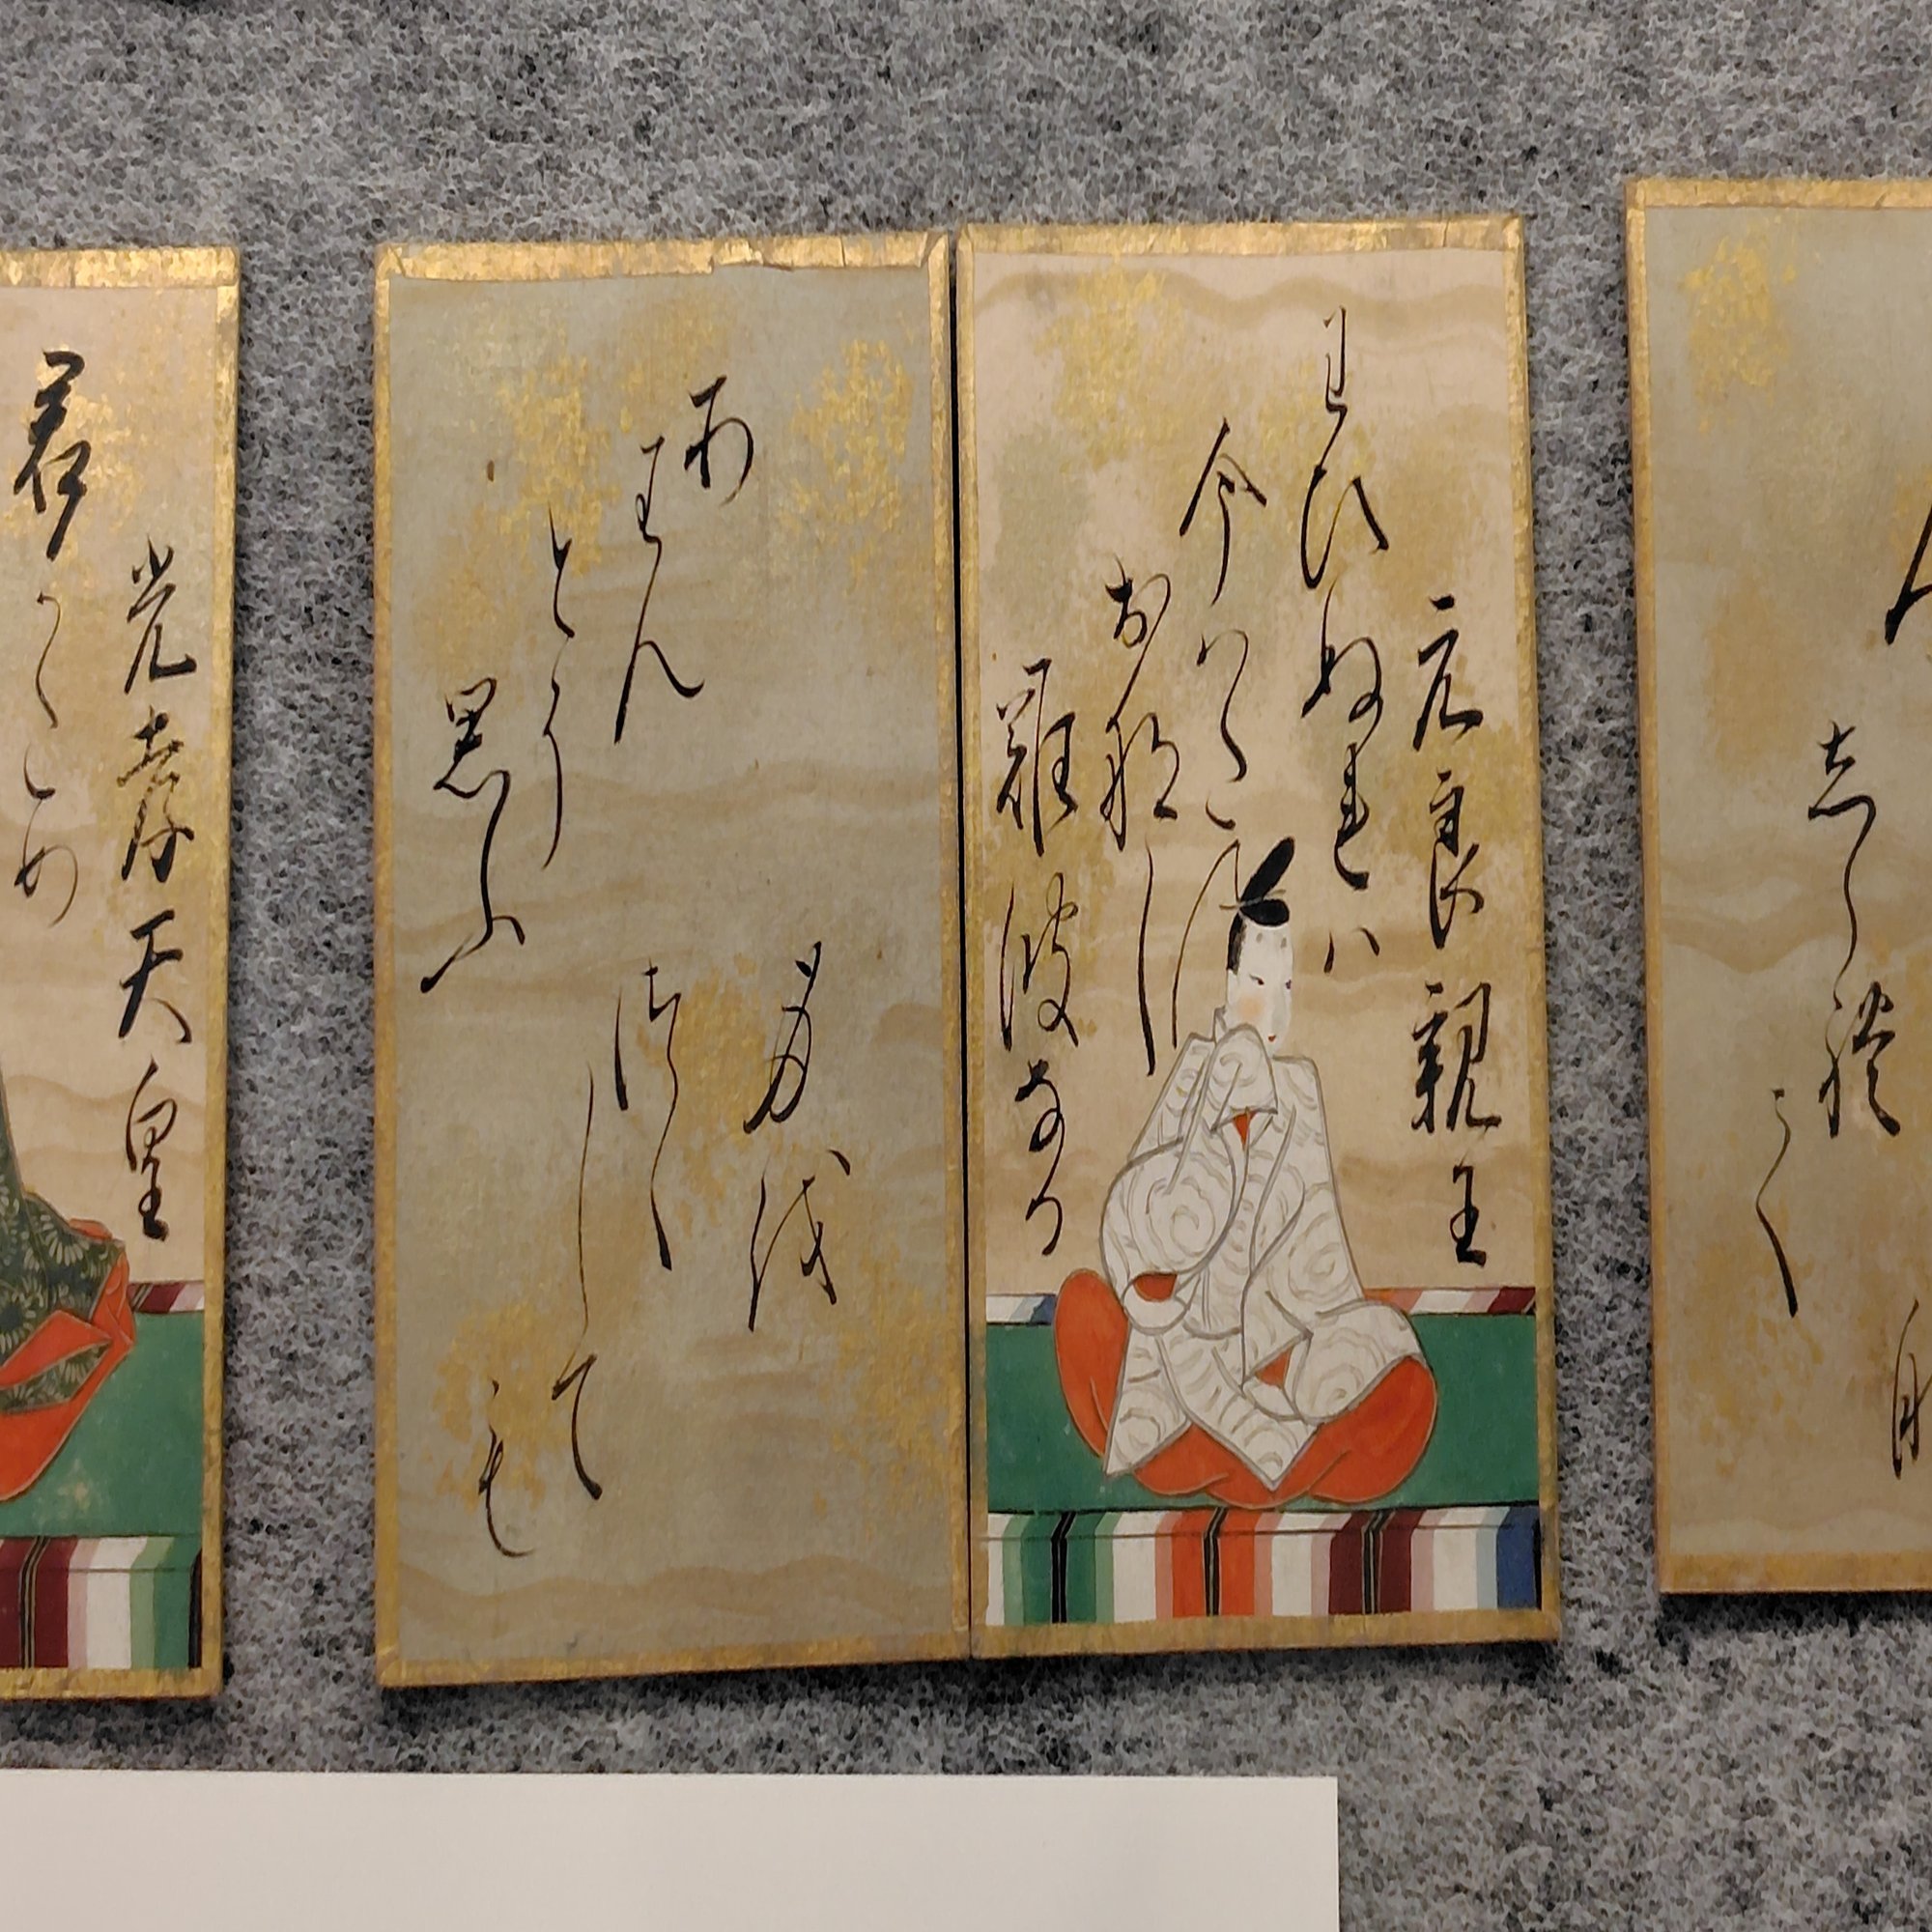 元良親王
わひぬれハ
今はた
おなし
難波なる
身を
つく
して
も
あ
わん
とそ
思ふ
光孝天皇
君かため